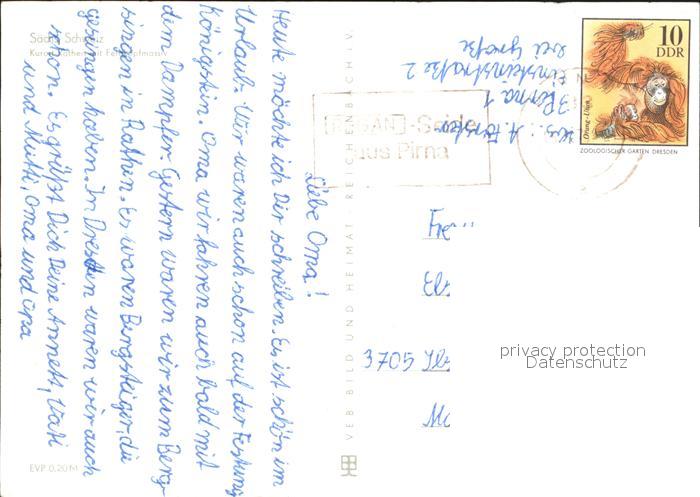 Sächs. Schweiz
Kurort Rathen mit Felskopfmassiv
Liebe Oma!
Heute möchte ich Dir schreiben. Es ist schön im
Urlaub. Wir waren auch schon auf der Festung
Königstein. Oma wir fahren auch bald mit
dem Dampfer. Gestern waren wir zum Berg-
singen in Rathen. Es waren Bergsteiger, die
gesungen haben. In Dresden waren wir auch
schon. Es grüßt Dich Deine Annett, Vati
und Mutti, Oma und Opa
EVP 0,20 M
VEB BILD UND HEIMAT REICHENBACH I. V.
-Seide
aus Pirna
A. Förster
Pirna 1
Einsteinstraße 2
bei Große
10
DDR
Orang-Utan
ZOOLOGISCHER GARTEN DRESDEN
3705
privacy protection
Datenschutz